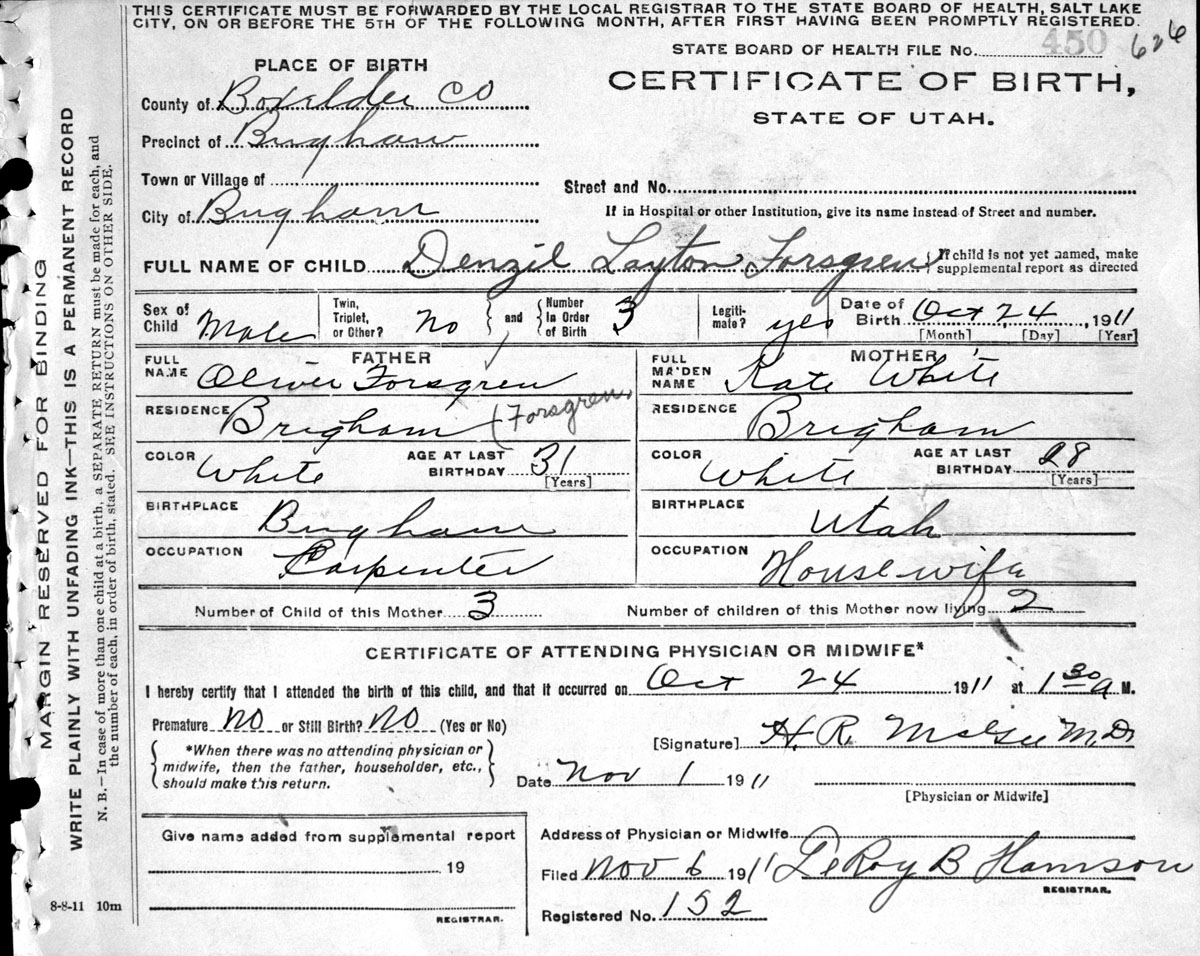 THIS CERTIFICATE MUST BE FORWARDED BY THE LOCAL REGISTRAR TO THE STATE BOARD OF HEALTH, SALT LAKE
CITY, ON OR BEFORE THE 5TH OF THE FOLLOWING MONTH, AFTER FIRST HAVING BEEN PROMPTLY REGISTERED.
STATE BOARD OF HEALTH FILE No. 450 626
PLACE OF BIRTH
CERTIFICATE OF BIRTH,
STATE OF UTAH.
County of Boxelder CO
Precinct of Brigham
Town or Village of
Street and No.
City of Brigham
If in Hospital or other Institution, give its name instead of Street and number.
FULL NAME OF CHILD Denzil Layton Forsgren { If child is not yet named, make
supplemental report as directed
Sex of Child Male
Twin, Triplet, or Other? No } and { Number In Order of Birth 3
Legitimate? yes
Date of Birth Oct 24, 1911
[Month] [Day] [Year]
FATHER
FULL NAME Oliver Forsgren
RESIDENCE Brigham (Forsgren)
COLOR White AGE AT LAST BIRTHDAY 31
[Years]
BIRTHPLACE Brigham
OCCUPATION Carpenter
MOTHER
FULL MAIDEN NAME Kate White
RESIDENCE Brigham
COLOR White AGE AT LAST BIRTHDAY 28
[Years]
BIRTHPLACE Utah
OCCUPATION Housewife
Number of Child of this Mother 3 Number of children of this Mother now living 2
CERTIFICATE OF ATTENDING PHYSICIAN OR MIDWIFE*
I hereby certify that I attended the birth of this child, and that it occurred on Oct 24 1911 at 1 30 a M.
Premature NO or Still Birth? NO (Yes or No)
*When there was no attending physician or
midwife, then the father, householder, etc.,
should make this return.
[Signature] H. R. McGee M.D.
Date Nov 1 1911
[Physician or Midwife]
Give name added from supplemental report
19
REGISTRAR.
8-8-11 10m
Address of Physician or Midwife
Filed Nov 6 1911 LeRoy B
REGISTRAR.
Registered No. 152
MARGIN RESERVED FOR BINDING
WRITE PLAINLY WITH UNFADING INK—THIS IS A PERMANENT RECORD
N. B.—In case of more than one child at a birth, a SEPARATE RETURN must be made for each, and
the number of each, in order of birth, stated. SEE INSTRUCTIONS ON OTHER SIDE.